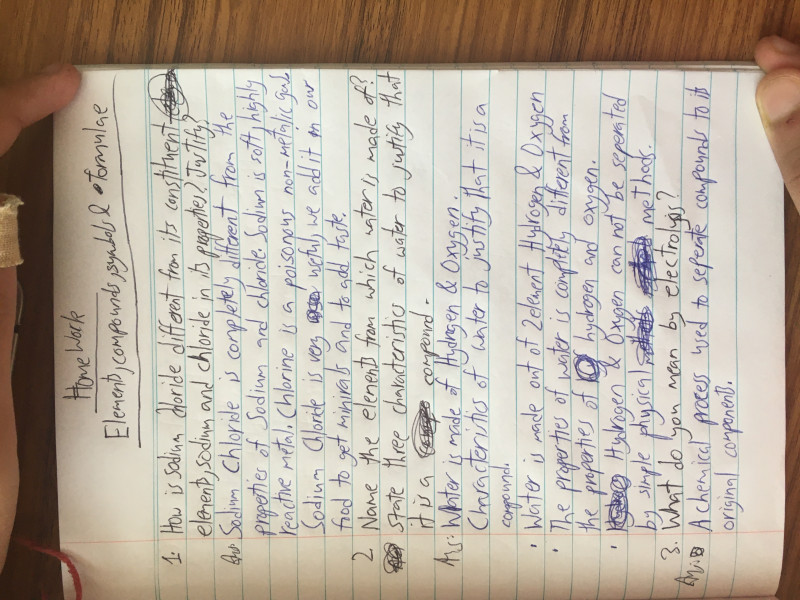 Home Work
Elements, compounds, symbols & Formulae
1. How is sodium chloride different from its constituent
elements, sodium and chloride in its properties? Justify?
Ans: Sodium Chloride is completely different from the
properties of Sodium and chloride. Sodium is soft, highly
reactive metal. Chlorine is a poisonous non-metalic gas
Sodium Chloride is very usefull, we add it in our
food to get minirals and to add taste.
2. Name the elements from which water is made of?
State three characteristics of water to justify that
it is a compound.
Ans: Water is made of Hydrogen & Oxygen.
Characteristics of water to justify that it is a
compound:
· Water is made out of 2 element Hydrogen & Oxygen
· The properties of water is completly different from
the properties of hydrogen and oxygen.
· Hydrogen & Oxygen can not be seperated
by simple physical methods.
3. What do you mean by electrolysis?
Ans: A chemical process used to seperate compounds to its
original components.